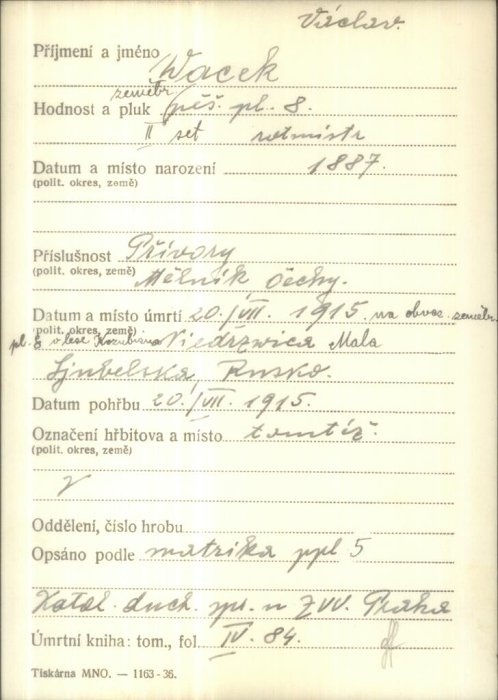 Václav.
Příjmení a jméno Wacek
zeměbr.
Hodnost a pluk pěš. pl. 8.
II set rotmistr
Datum a místo narození 1887.
(polit. okres, země)
Příslušnost Přívory
(polit. okres, země) Mělník, Čechy.
Datum a místo úmrtí 20./VII. 1915 na obvaz. zeměbr.
(polit. okres, země)
pl. 8 v lese Niedrzwica Mala
Ljubelska, Rusko.
Datum pohřbu 20./VII. 1915.
Označení hřbitova a místo tamtéž.
(polit. okres, země)
Oddělení, číslo hrobu
Opsáno podle matrika ppl 5
Katol. duch. spr. u ZVV. Praha
Úmrtní kniha: tom., fol. IV. 84.
Tiskárna MNO. — 1163-36.